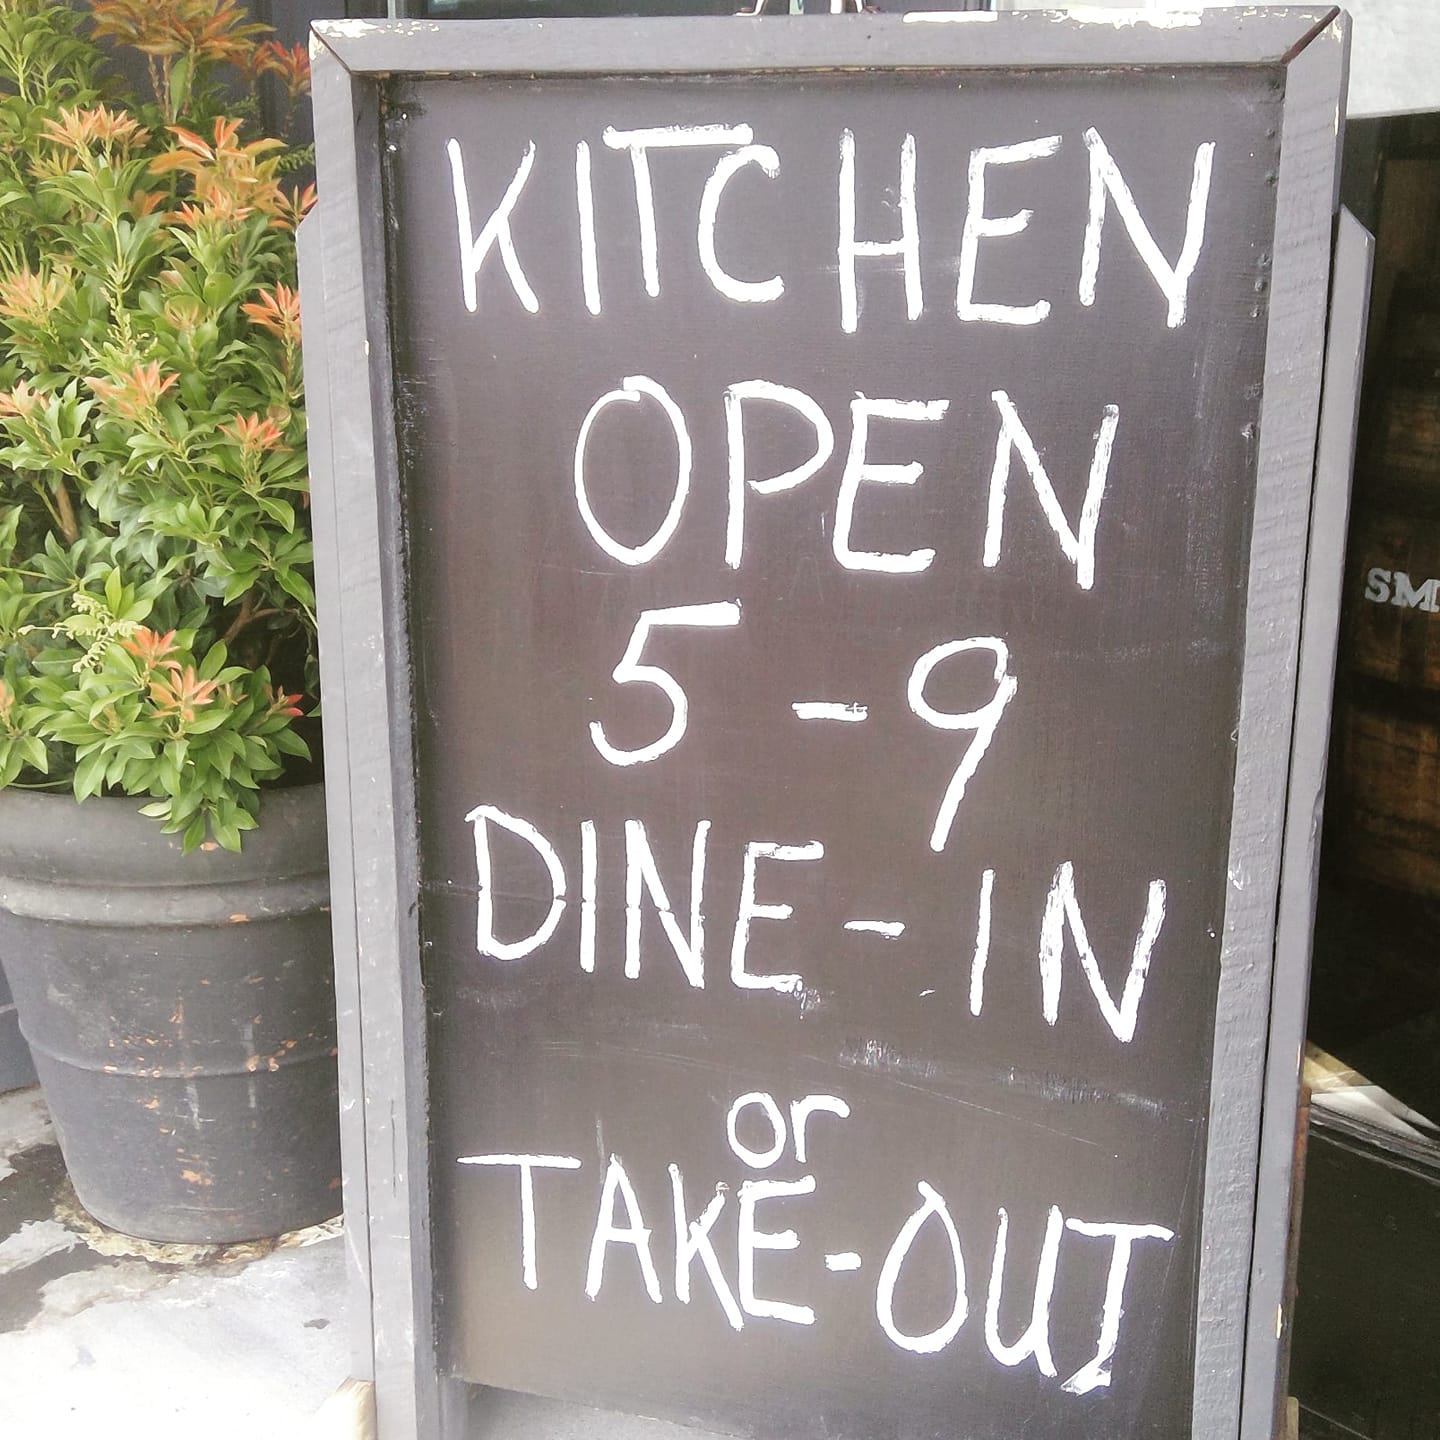 KITCHEN
OPEN
5 - 9
DINE - IN
or
TAKE - OUT